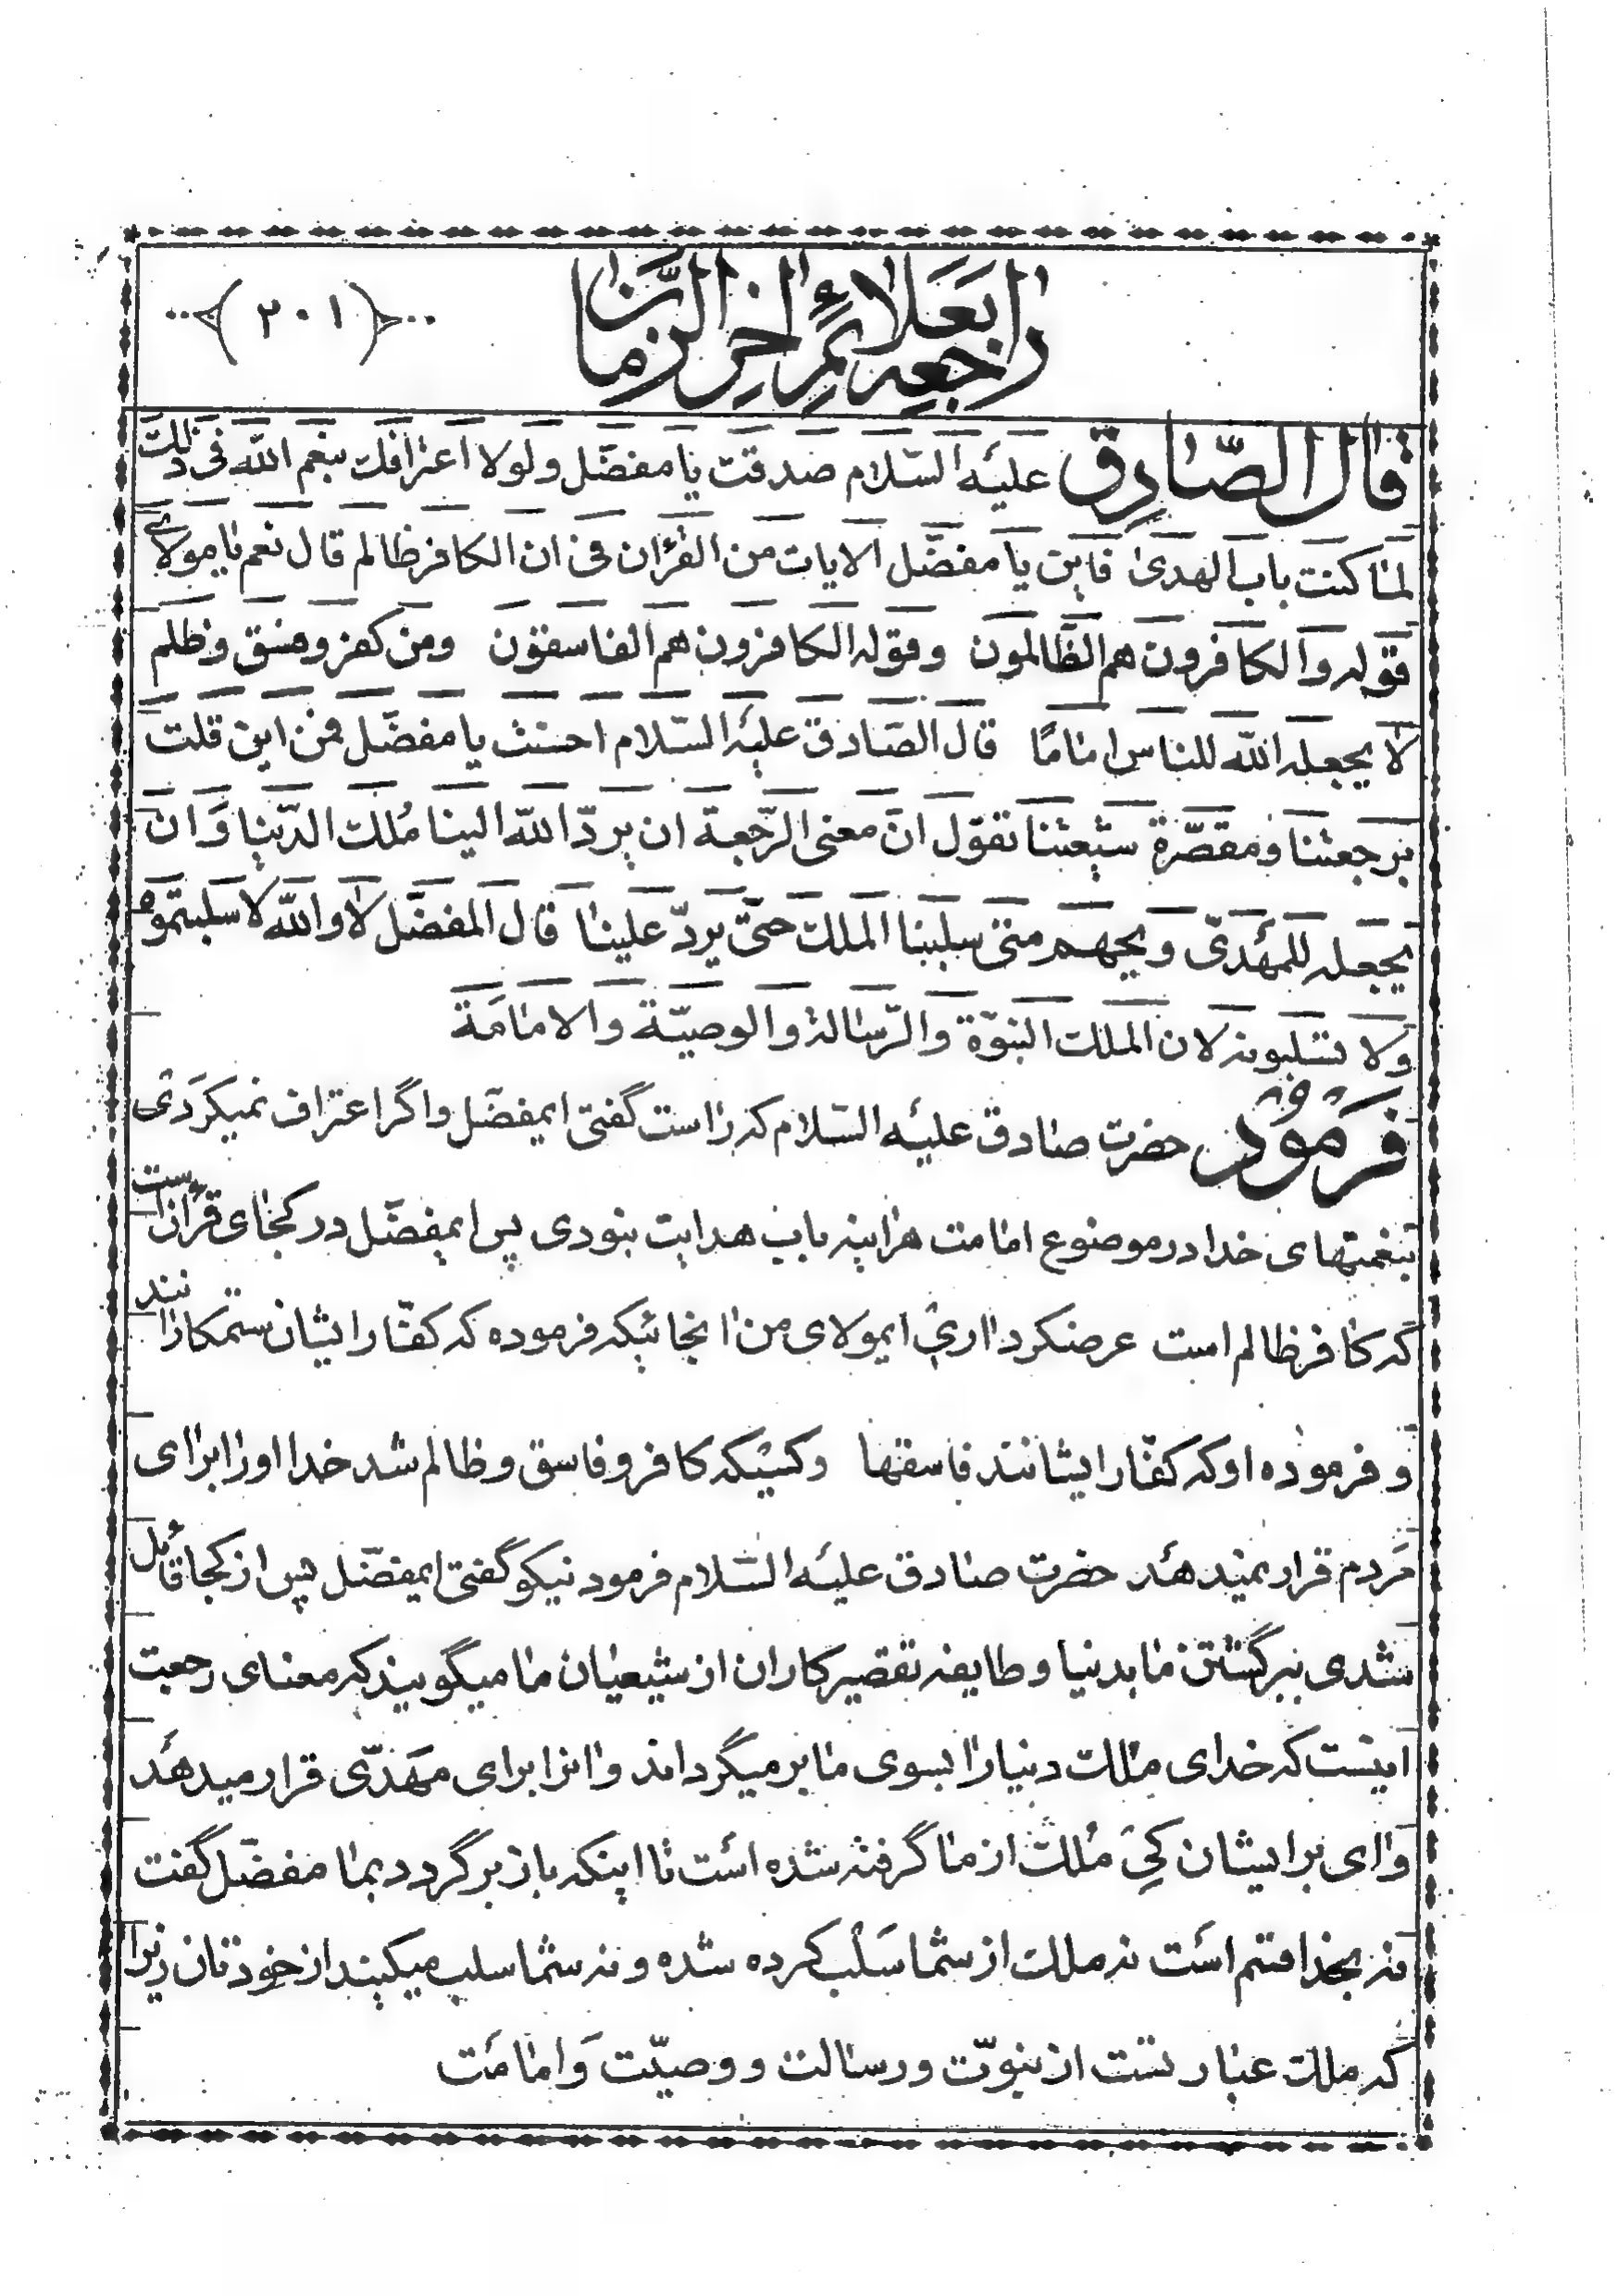 راجعه بعلائم اخر الزمان
(۲۰۱)
قال الصّادق علیه السّلام صدقت یا مفضّل ولولا اعترافك بنعم الله فی ذلك
لما كنت باب الهدی فاین یا مفضّل الایات من القرءان فی ان الكافر ظالم قال نعم یا مولای
قوله والكافرون هم الظّالمون وقوله الكافرون هم الفاسقون ومن كفر وفسق وظلم
لا یجعله الله للناس اماما قال الصّادق علیه السّلام احسنت یا مفضّل فمن این قلت
برجعتنا ومقصّرة شیعتنا تقول انّ معنی الرّجعة ان یردّ الله الینا مُلك الدّنیا وَان
یجعله للمهدیّ ویحهم متی سلبنا الملك حتّی یردّ علینا قال المفضّل لا والله لا سلبتموه
ولا تسلبونه لان الملك النبوّة والرّسالة والوصیّة والامامَة
فرمود حضرت صادق علیه السّلام كه راست گفتی ایمفضّل واگر اعتراف نمیكردی
بنعمتهای خدا در موضوع امامت هراینه باب هدایت نبودی پس ایمفضّل در كجای قرآنست
كه كافر ظالم است عرضكرد اری ایمولای من انجائیكه فرموده كه كفّار ایشان ستمكارانند
و فرموده او كه كفّار ایشانند فاسقها وكسیكه كافر و فاسق و ظالم شد خدا اورا برای
مَردم قرار نمیدهد حضرت صادق علیه السّلام فرمود نیكو گفتی ایمفضّل پس از كجا قائل
شدی ببرگشتن ما بدنیا و طایفه تقصیركاران از شیعیان ما میگویند كه معنای رجعت
اینست كه خدای ملك دنیا را بسوی ما بر میگرداند و انرا برای مَهدّی قرار میدهد
وای بر ایشان كِیَ مُلك از ما گرفته شده است تا اینكه باز بر گردد بما مفضّل گفت
نه بخدا قسم است نه ملك از شما سَلب كرده شده و نه شما سلب میكنید از خودتان زیرا
كه ملك عبارتست از نبوّت و رسالت و وصیّت وَ امامَت